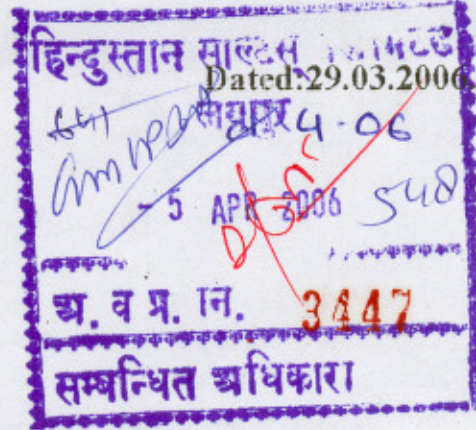 हिन्दुस्तान साल्टस् लिमिटेड
Dated:29.03.2006.
4-06
- 5 APR 2006 548
अ. व प्र. नि. 3447
सम्बन्धित अधिकारी